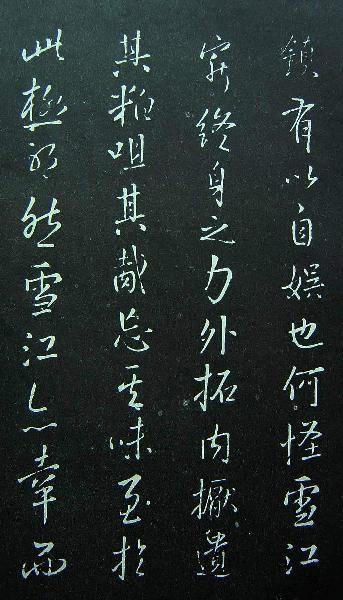 鎮有以自娛也何怪雪江
窮終身之力外拓内擫遺
其粕咀其胾忘其味至於
此極邪然雪江亦幸而